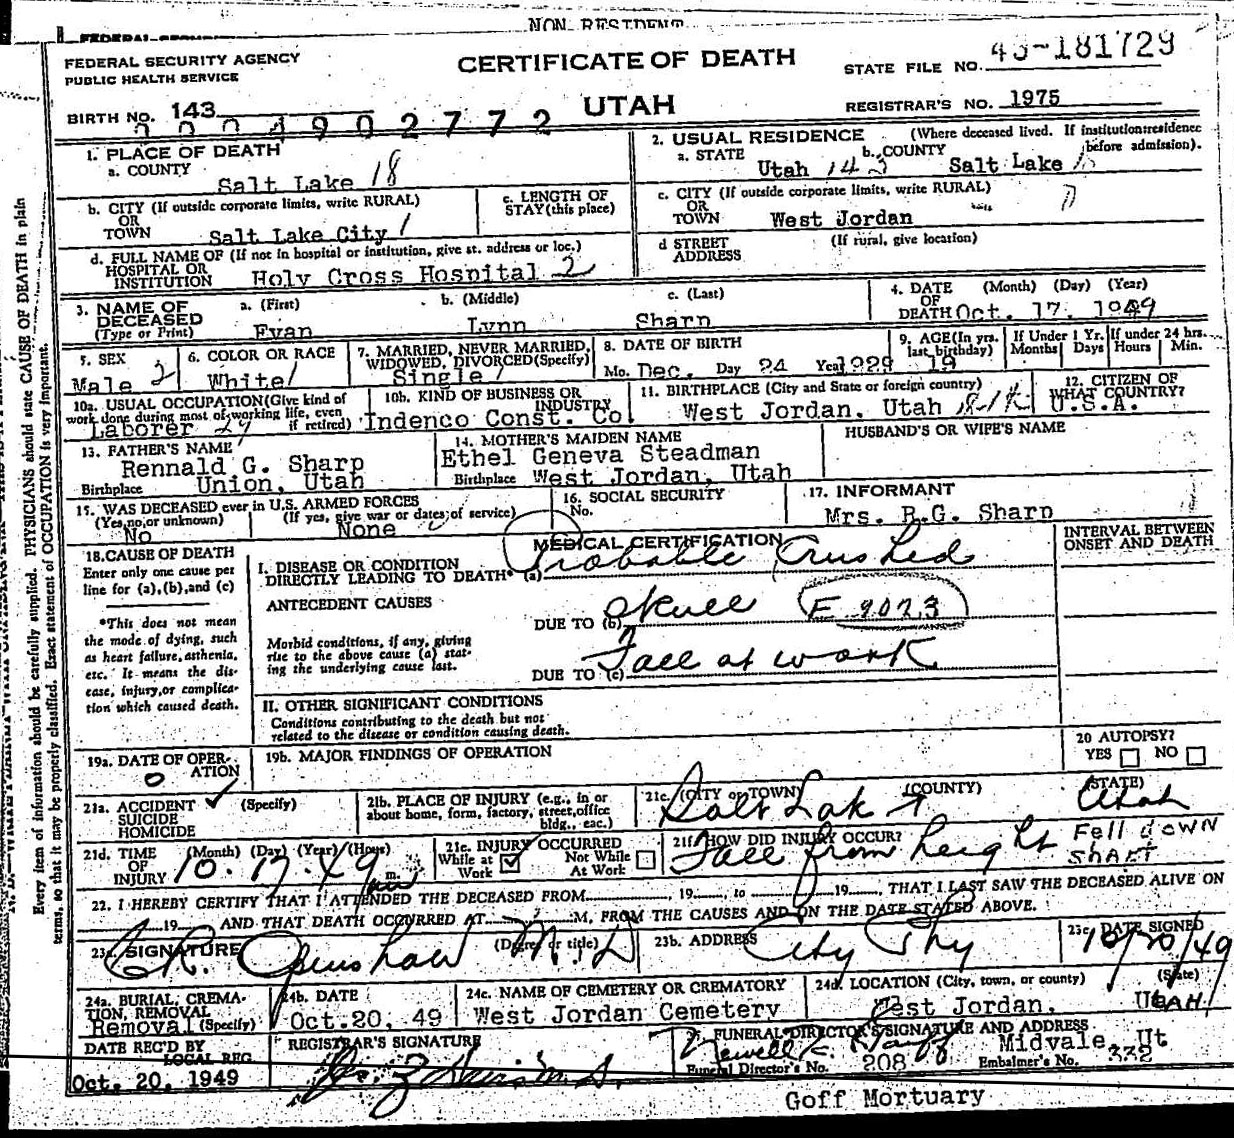 NON RESIDENT
FEDERAL SECURITY AGENCY
PUBLIC HEALTH SERVICE
CERTIFICATE OF DEATH
STATE FILE NO. 49-181729
BIRTH No. 143
UTAH
REGISTRAR'S NO. 1975
0004902772
1. PLACE OF DEATH
a. COUNTY
Salt Lake 18
2. USUAL RESIDENCE (Where deceased lived. If institution:residence before admission).
a. STATE Utah 143 b. COUNTY Salt Lake
b. CITY (If outside corporate limits, write RURAL)
OR
TOWN Salt Lake City 1
c. LENGTH OF
STAY (this place)
c. CITY (If outside corporate limits, write RURAL)
OR
TOWN West Jordan
d. FULL NAME OF (If not in hospital or institution, give st. address or loc.)
HOSPITAL OR
INSTITUTION Holy Cross Hospital 2
d STREET (If rural, give location)
ADDRESS
3. NAME OF
DECEASED
(Type or Print)
a. (First) b. (Middle) c. (Last)
Evan Lynn Sharp
4. DATE (Month) (Day) (Year)
OF
DEATH Oct. 17. 1949
5. SEX
Male 2
6. COLOR OR RACE
White 1
7. MARRIED, NEVER MARRIED,
WIDOWED, DIVORCED(Specify)
Single 1
8. DATE OF BIRTH
Mo. Dec. Day 24 Year 1929
9. AGE(In yrs. last birthday)
19
If Under 1 Yr.
Months Days
If under 24 hrs.
Hours Min.
10a. USUAL OCCUPATION(Give kind of
work done during most of working life, even
if retired)
Laborer 29
10b. KIND OF BUSINESS OR
INDUSTRY
Indenco Const. Co
11. BIRTHPLACE (City and State or foreign country)
West Jordan, Utah
12. CITIZEN OF
WHAT COUNTRY?
U.S.A.
13. FATHER'S NAME
Rennald G. Sharp
Birthplace Union, Utah
14. MOTHER'S MAIDEN NAME
Ethel Geneva Steadman
Birthplace West Jordan, Utah
HUSBAND'S OR WIFE'S NAME
15. WAS DECEASED ever in U.S. ARMED FORCES
(Yes,no,or unknown) (If yes, give war or dates of service)
No None
16. SOCIAL SECURITY
No.
17. INFORMANT
Mrs. R.G. Sharp
18. CAUSE OF DEATH
Enter only one cause per
line for (a),(b),and (c)
*This does not mean
the mode of dying, such
as heart failure, asthenia,
etc. It means the dis-
ease, injury,or complica-
tion which caused death.
MEDICAL CERTIFICATION
INTERVAL BETWEEN
ONSET AND DEATH
I. DISEASE OR CONDITION
DIRECTLY LEADING TO DEATH* (a) Probable Crushed
ANTECEDENT CAUSES
DUE TO (b) Skull E 902.3
Morbid conditions, if any, giving
rise to the above cause (a) stat-
ing the underlying cause last.
DUE TO (c) Fall at work
II. OTHER SIGNIFICANT CONDITIONS
Conditions contributing to the death but not
related to the disease or condition causing death.
19a. DATE OF OPER-
ATION
0
19b. MAJOR FINDINGS OF OPERATION
20 AUTOPSY?
YES NO
21a. ACCIDENT ✓ (Specify)
SUICIDE
HOMICIDE
21b. PLACE OF INJURY (e.g., in or
about home, form, factory, street,office
bldg., eac.)
21c. (CITY or TOWN) (COUNTY) (STATE)
Salt Lake Utah
21d. TIME (Month) (Day) (Year) (Hour)
OF
INJURY 10. 17. 49 m.
21e. INJURY OCCURRED
While at Work ✓ Not While At Work
21f HOW DID INJURY OCCUR?
Fall from height Fell down
shaft
22. I HEREBY CERTIFY THAT I ATTENDED THE DECEASED FROM 19 to 19 THAT I LAST SAW THE DECEASED ALIVE ON
19 AND THAT DEATH OCCURRED AT M, FROM THE CAUSES AND ON THE DATE STATED ABOVE.
23a. SIGNATURE (Degree or title)
Openshaw M.D
23b. ADDRESS
City Phy
23c. DATE SIGNED
10/20/49
24a. BURIAL, CREMA-
TION, REMOVAL
Removal (Specify)
24b. DATE
Oct.20, 49
24c. NAME OF CEMETERY OR CREMATORY
West Jordan Cemetery
24d. LOCATION (City, town, or county) (State)
West Jordan, Utah
DATE REC'D BY
LOCAL REG.
Oct. 20, 1949
REGISTRAR'S SIGNATURE
FUNERAL DIRECTOR'S SIGNATURE AND ADDRESS
Newell Midvale, Ut
Funeral Director's No. 208 Embalmer's No. 332
Goff Mortuary
Every item of information should be carefully supplied. PHYSICIANS should state CAUSE OF DEATH in plain
terms, so that it may be properly classified. Exact statement of OCCUPATION is very important.